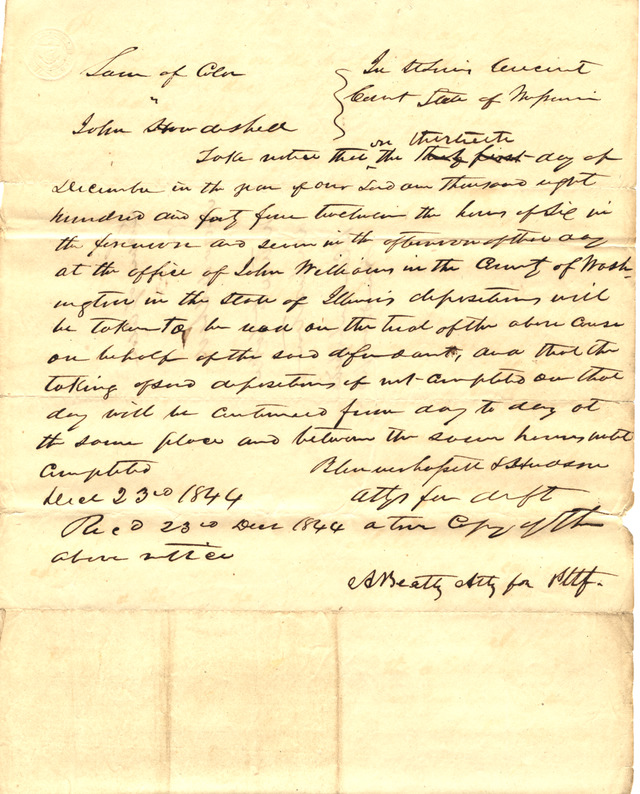 Sam of Color
In St Louis Circuit
"
Court State of Missouri
John Howdeshell
on thirtieth
Take notice that the thirty first day of
December in the year of our Lord one thousand eight
hundred and forty four between the hours of six in
the forenoon and seven in the afternoon of that day
at the office of John Williams in the County of Wash-
ington in the State of Illinois depositions will
be taken to be read on the trial of the above cause
on behalf of the said defendant, and that the
taking of said depositions if not completed on that
day will be continued from day to day at
the same place and between the same hours until
completed
& Hudson
Decr 23rd 1844
attys for deft
Recd 23rd Decr 1844 a true Copy of the
above notice
A Beatty Atty for Pltf.